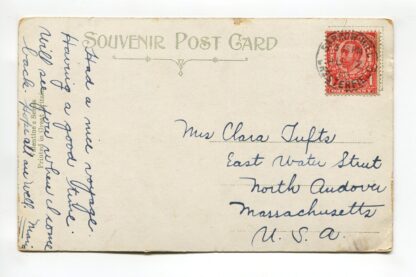 SOUVENIR POST CARD
Had a nice voyage.
Having a good time.
Will see you when I come
back. Hope all are well. Marj
Mrs Clara Tufts
East Water Street
North Andover
Massachusetts
U. S. A.
1